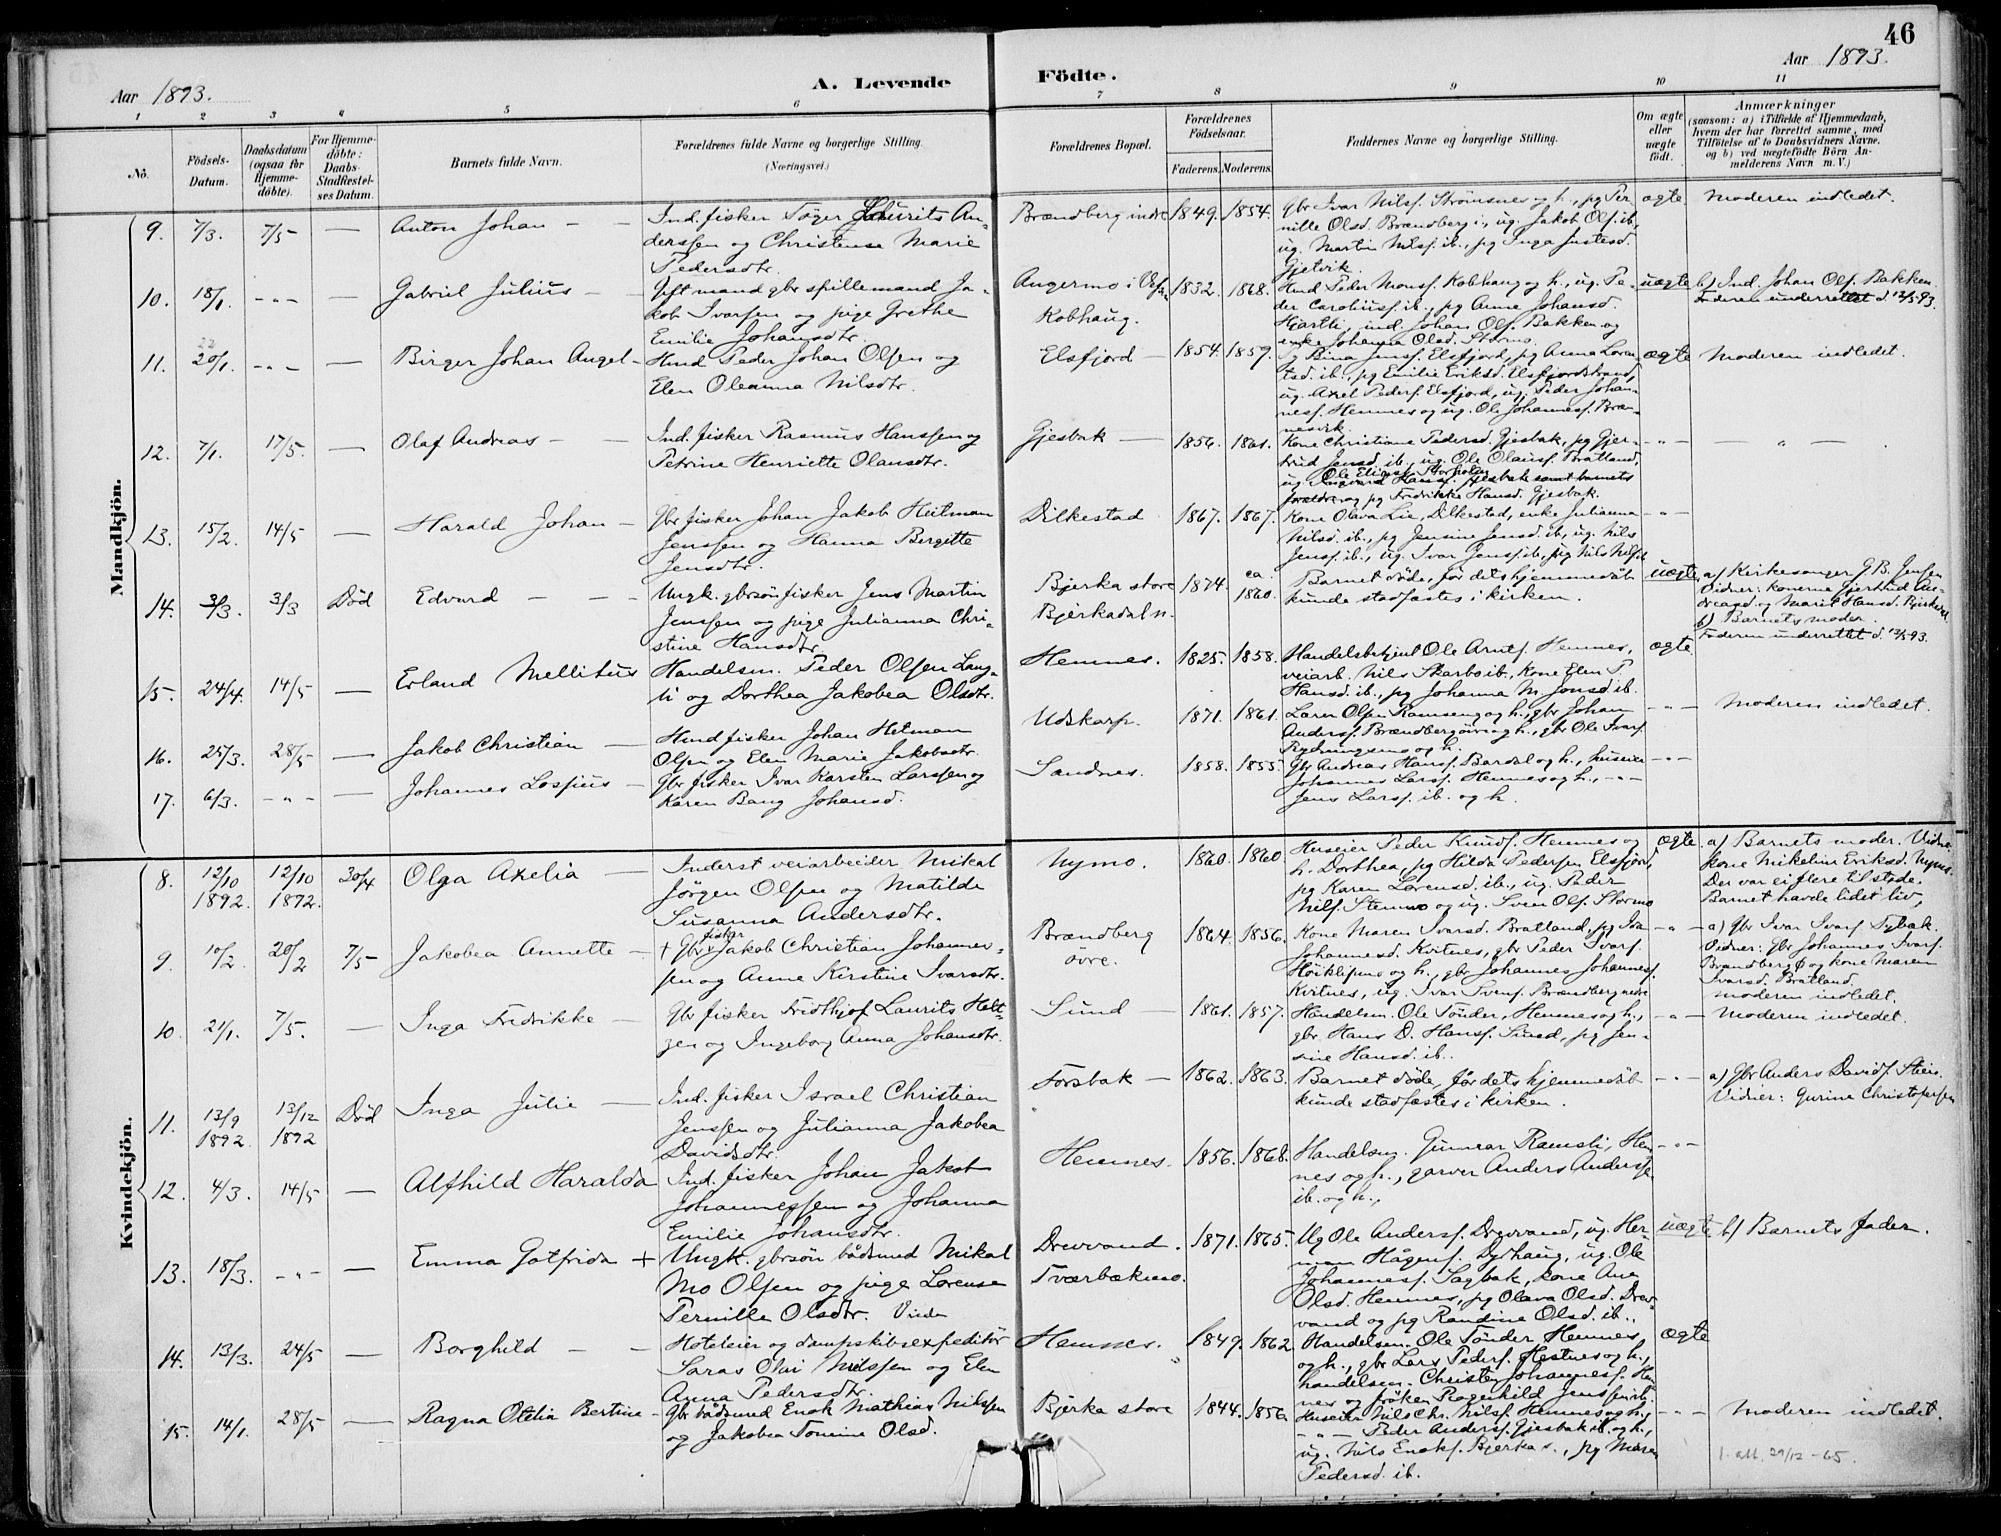 46
Aar 1893. A. Levende Födte. Aar 1893.
1 2 3 4 5 6 7 8 9 10 11
No. Födsels-Datum. Daabsdatum (ogsaa for Hjemme-döbte). For Hjemme-döbte: Daabs-Stadfæstel-ses Datum. Barnets fulde Navn. Forældrenes fulde Navne og borgerlige Stilling. (Næringsvei.) Forældrenes Bopæl. Forældrenes Födselsaar. Faderens. Moderens. Faddernes Navne og borgerlige Stilling. Om ægte eller uægte födt. Anmærkninger (saasom: a) i Tilfælde af Hjemmedaab, hvem der har forrettet samme, med Tilföielse af to Daabsvidners Navne, og b) ved uægtefödte Börn An-melderens Navn m. V.)
Mandkjön.
9. 7/3. 7/5 — Anton Johan — —
Ind. fisker Töger Laurits An-
derssen og Christense Marie
Pedersdtr.
Brændberg indre 1849. 1854.
Gbr Ivar Nilsf. Strömsnes og h., pg Per-
nille Olsd. Brændberg i., ug. Jakob Olsf. ib.,
ug. Martin Nilsf. ib., pg Inga Justesd.
Gjetvik.
ægte Moderen indledet.
10. 18/1. -"- — Gabriel Julius — —
Gift mand gbr spillemand Ja-
kob Ivarsen og pige Grethe
Emilie Johansdtr.
Angermo i Vefs.
Kobhaug.
1832. 1868.
Hmd Peder Monsf. Kobhaug og h., ug. Pe-
der Caroliusf. ib., pg Anne Johansd.
Hjartli, ind. Johan Olsf. Bakken og
enke Johanna Olsd. Stormo.
uægte b) Ind. Johan Olsf. Bakken.
Faderen underrettet d. 12/5 93.
11. 22 20/1. -"- — Birger Johan Angel —
Hmd Peder Johan Olsen og
Elen Oleanna Nilsdtr.
Elsfjord — 1854. 1859.
Pg Bina Jensf. Elsfjord, pg Anna Loren-
tsd. ib., pg Emilie Eriksd. Elsfjordstrand,
ug. Axel Pedersf. Elsfjord, ug. Peder Johan-
nesf. Hemnes og ug. Ole Johannesf. Bræ-
nesvik.
ægte Moderen indledet.
12. 7/1. 17/5. — Olaf Andreas — —
Ind. fisker Rasmus Hanssen og
Petrine Henriette Olausdtr.
Gjesbak — 1856. 1861.
Kone Christiane Pedersd. Gjesbak, pg Gjer-
trud Jensd. ib., ug. Ole Olausf. Bratland,
Ole Eliasf.
ug. Hansf. Gjesbak samt barnets
forældre og pg Fredrikke Hansd. Gjesbak.
-"- — " —
13. 15/2. 14/5 — Harald Johan —
Gbr fisker Johan Jakob Heitman
Jenssen og Hanna Bergitte
Jensdtr.
Dilkestad 1867. 1867.
Kone Olava Lie, Dilkestad, enke Julianna
Nilsd. ib., pg Jensine Jensd. ib., ug. Nils
Jensf. ib., ug. Ivar Jensf. ib., pg Nils Nilsf. ib
-"-
14. 3/3. 3/3 Död Edvard — — —
Ungk. gbrsön fisker Jens Martin
Jenssen og pige Julianna Chri-
stine Hansdtr.
Bjerka store
Bjerkadaln.
1874. ca. 1860.
Barnet döde, för dets hjemmedåb
kunde stadfæstes i kirken.
uægte a) Kirkesanger G. B. Jensen
Vidner: konerne Gjertrud An-
dreasd. og Marit Hansd. Bjerka
b) Barnets moder.
Faderen underrettet d. 12/5 93.
15. 24/4. 14/5 — Erland Mellitius
Handelsm. Peder Olsen Lang-
li og Dorthea Jakobea Olsdtr.
Hemnes. 1825. 1858.
Handelsbetjent Ole Arntf. Hemnes,
veiarb. Nils Skarbo ib., kone Elen P.
Hansd. ib., pg Johanna M. Jonsd ib.
ægte
16. 25/3. 28/5 — Jakob Christian —
Hmd fisker Johan Hetman
Olsen og Elen Marie Jakobsdtr.
Udskarp. 1871. 1861.
Lærer Olsen Ramseng og h., gbr Johan
Andersf. Brændberg övre og h., gbr Ole Ivarf.
Rydningsmo og h.
-"- Moderen indledet.
17. 6/3. -"- — Johannes Lospius —
Gbr fisker Ivar Karsten Larssen og
Karen Bang Johansd.
Sandnes. 1858. 1855.
Gbr Andreas Hansf. Bardal og h., huseier
Johannes Larsf. Hemnes og h., -"-
Jens Larsf. ib. og h.
-"-
Kvindekjön.
8. 12/10 1892. 12/10 1892. 30/4 Olga Axelia —
Inderst veiarbeider Mikal
Jörgen Olsen og Matilde
Susanna Andersdtr.
Nymo. 1860. 1860
Huseier Peder Knudf. Hemnes og
h. Dorthea, pg Hilda Pedersen Elsfjord,
pg Karen Lorensd. ib., ug. Peder
Nilsf. Stenmo og ug. Sven Olsf. Stormo
ægte a) Barnets moder. Vidne:
kone Mikeline Eriksd. Nymo.
Der var ei flere tilstede.
Barnet havde lidet liv.
9. 10/2. 20/2 7/5 Jakobea Annette —
fisker
+ Gbr Jakob Christian Johannes-
sen og Anne Kirstine Ivarsdtr.
Brændberg
övre.
1864. 1856.
Kone Maren Ivarsd. Bratland, pg Ida
Johannesd. Kvitnes, gbr Peder Ivarf.
Höiklipmo og h., gbr Johannes Johannesf.
Kvitnes, ug. Ivar Svenf. Brændberg nedre
-"- a) Gbr Ivar Ivarf. Sybak.
Vidner: Gbr Johannes Ivarf.
Brændberg ö og kone Maren
Ivarsd. Bratland.
Moderen indledet.
10. 21/1. 7/5. — Inga Fredrikke —
Gbr fisker Fridthjof Laurits Helt-
zen og Ingeborg Anna Johansdtr.
Sund — 1861. 1857.
Handelsm. Ole Tönder, Hemnes og h.,
gbr Hans D. Hansf. Sund, pg Jen-
sine Hansd. ib.
-"- Moderen indledet.
11. 13/9 1892. 13/12 1892 Död Inga Julie —
Ind. fisker Israel Christian
Jenssen og Julianna Jakobea
Davidsdtr.
Forsbak — 1862. 1863.
Barnet döde, för dets hjemmedåb
kunde stadfæstes i kirken.
-"- a) Gbr Anders Davidf. Stien.
Vidner: Gurine Christofersen
12. 4/3. 14/5 — Alfhild Haralda
Ind. fisker Johan Jakob
Johannessen og Johanna
Emilie Johansdtr.
Hemnes. 1856. 1868.
Handelsm. Gunnar Ramsli, Hem-
nes og h., garver Anders Anderssen
ib. og h.,
-"-
13. 18/3. -"- — Emma Gotfrida +
Ungk. gbrsön bådsmd Mikal
Mo Olsen og pige Lorense
Pernille Olsdtr.
Drevvand.
Tværbækmo.
1871. 1865.
Ug Ole Andersf. Drevvand, ug. Her-
man Hågensf. Dydhaug, ug. Ole
Johannesf. Sagbak, kone Ane
Olsd. Hemnes, pg Olava Olsd. Drev-
vand og pg Randine Olsd. ib.
uægte b) Barnets fader.
14. 13/3. 24/5 — Borghild — —
Hoteleier og dampskibsexpeditör
Saras Olai Nilssen og Elen
Anna Pedersdtr.
Hemnes. 1849. 1862
Handelsm. Ole Tönder Hemnes
og h., gbr Lars Pedersf. Hestnes og h.,
handelsm. Christen Johannesf. Hem-
nes fröken Ragnhild Jenssen ib.
ægte
15. 14/1. 28/5 — Ragna Otelia Bertine —
Gbr bådsmd Enok Mathias Nilssen
og Jakobea Tomine Olsd.
Bjerka store 1844. 1856
Huseier Nils Chr. Nilsf. Hemnes og h.,
-"- Peder Andersf. Gjesbak ib. og h.,
ug. Nils Enokf. Bjerka s., pg Maren
Pedersd. ib.
-"- Moderen indledet.
1. att. 29/12 - 65.